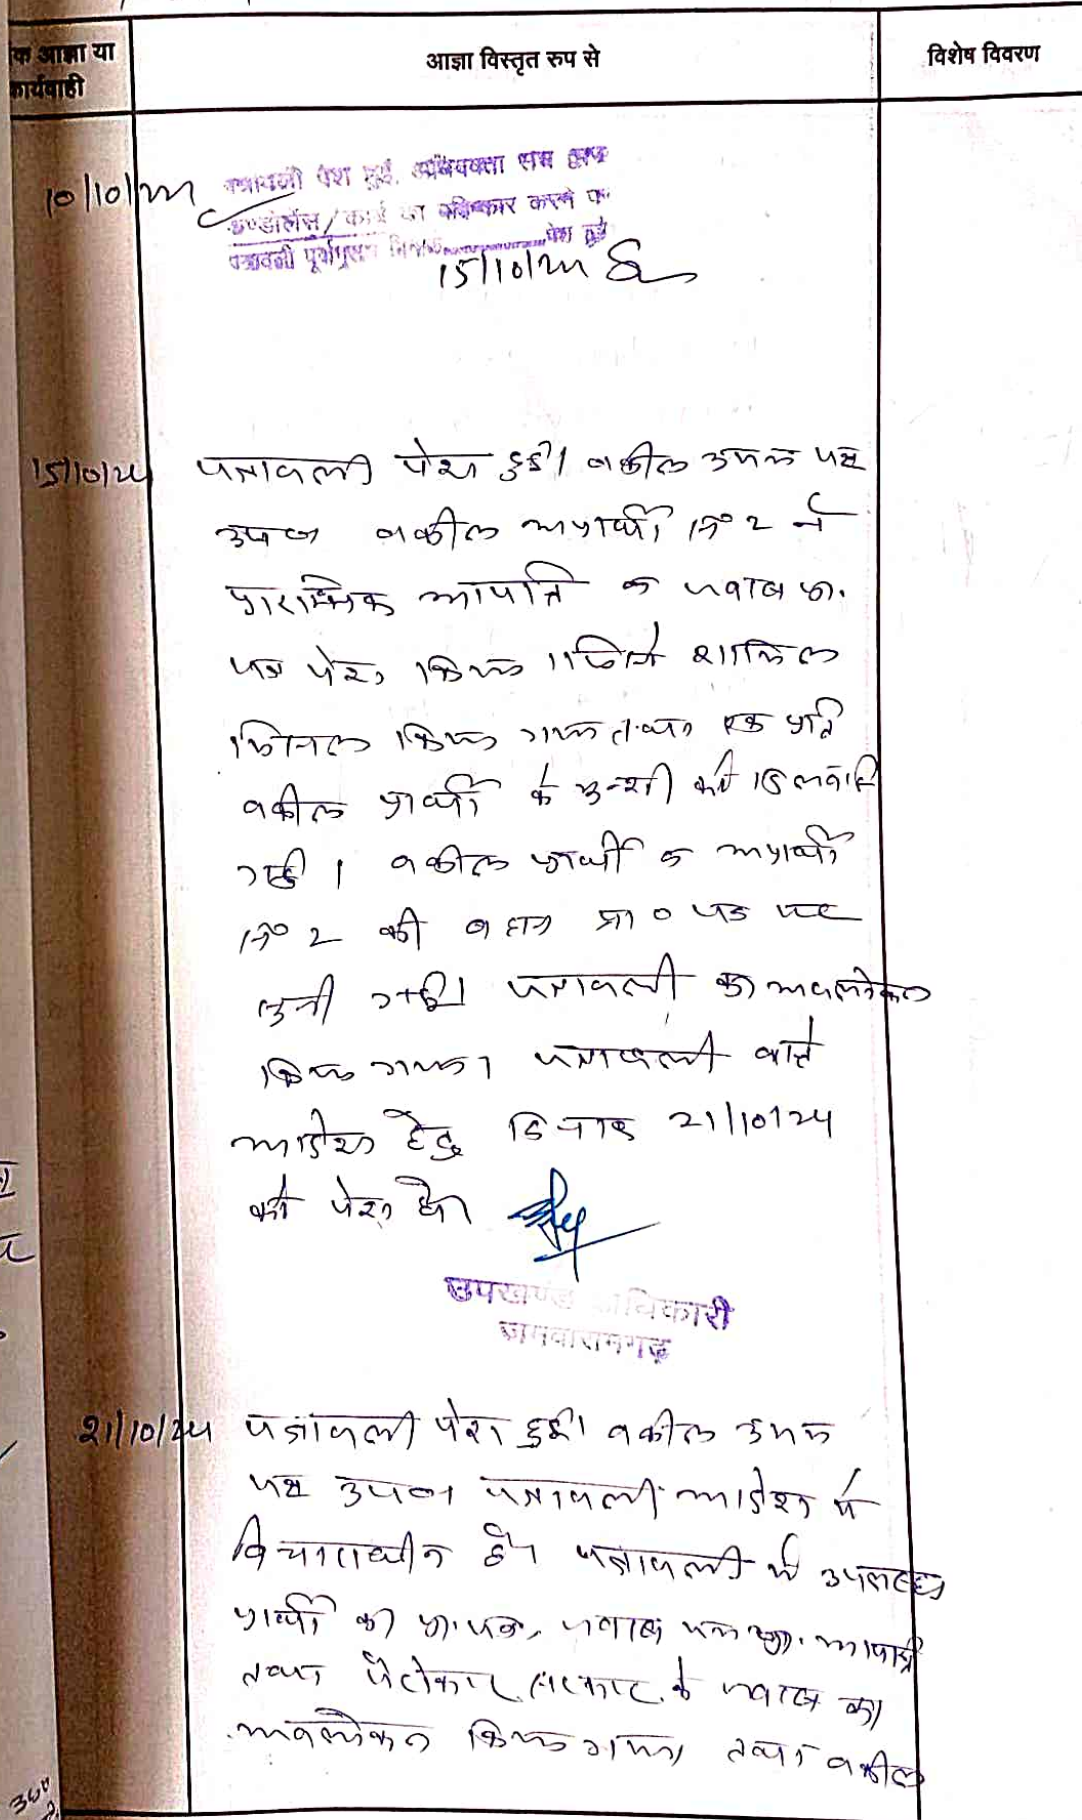 क आज्ञा या
कार्यवाही
आज्ञा विस्तृत रुप से
विशेष विवरण
10/10/24 पत्रावली पेश हुई, अभिवक्ता संघ द्वारा
कण्डोलेंस/कार्य का बहिष्कार करने
पत्रावली पूर्वानुसार दिनांक पेश हो
15/10/24
15/10/24 पत्रावली पेश हुई। वकील उभय पक्ष
उप० वकील अप्रार्थी नं० 2 ने
प्रारम्भिक आपत्ति व जवाब प्रा.
पत्र पेश किया। जिसे शामिल
मिसल किया गया तथा एक प्रति
वकील प्रार्थी के मुन्शी को दिलवाई
गई। वकील प्रार्थी व अप्रार्थी
नं० 2 की बहस प्रा० पत्र पर
सुनी गई। पत्रावली का अवलोकन
किया गया। पत्रावली वास्ते
आदेश हेतु दिनांक 21/10/24
को पेश हो।
उपखण्ड अधिकारी
जमवारामगढ़
21/10/24 पत्रावली पेश हुई। वकील उभय
पक्ष उप० पत्रावली आदेश में
विचाराधीन है। पत्रावली में उपलब्ध
प्रार्थी का प्रा. पत्र, जवाब आपत्ति
तथा पैरोकार सरकार के जवाब का
अवलोकन किया गया तथा वकील